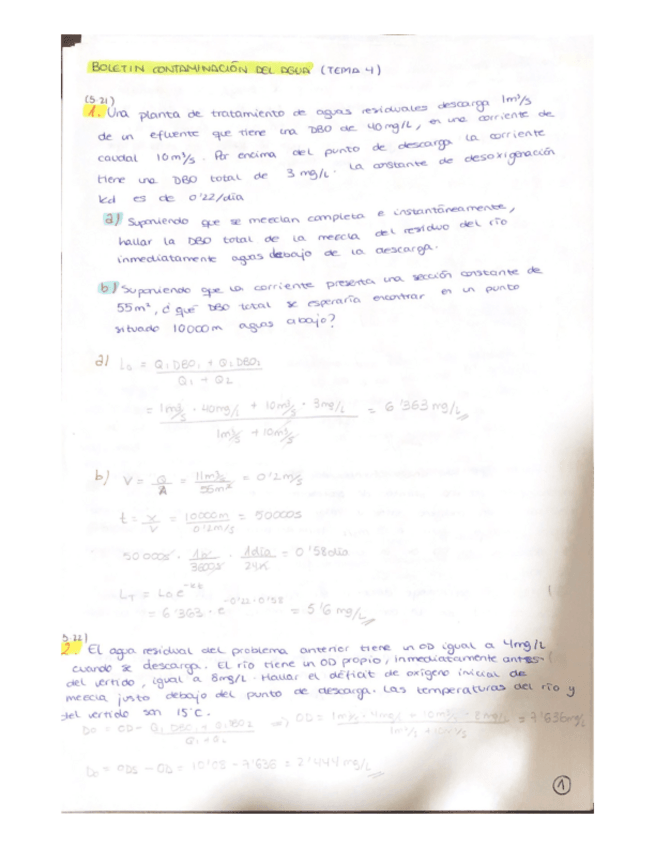 BOLETIN CONTAMINACIÓN DEL AGUA (TEMA 4)
(5.21)
1. Una planta de tratamiento de aguas residuales descarga 1m³/s
de un efluente que tiene una DBO de 40mg/L, en una corriente de
caudal 10m³/s. Por encima del punto de descarga la corriente
tiene una DBO total de 3 mg/L. La constante de desoxigenación
kd es de 0'22/día
a) Suponiendo que se mezclan completa e instantáneamente,
hallar la DBO total de la mezcla del residuo del río
inmediatamente aguas debajo de la descarga.
b) Suponiendo que la corriente presenta una sección constante de
55m², ¿qué DBO total se esperaría encontrar en un punto
situado 10000m aguas abajo?
a) L₀ = Q₁DBO₁ + Q₂DBO₂
Q₁ + Q₂
= 1m³/s · 40mg/L + 10m³/s · 3mg/L = 6'363 mg/L
1m³/s + 10m³/s
b) V = Q/A = 11m³/s / 55m² = 0'2m/s
t = x/v = 10000m / 0'2m/s = 50000s
50000s · 1h/3600s · 1día/24h = 0'58día
L_T = L₀e^-kt
= 6'363 · e^-0'22·0'58 = 5'6 mg/L
5.22)
2. El agua residual del problema anterior tiene un OD igual a 4mg/L
cuando se descarga. El río tiene un OD propio, inmediatamente antes
del vertido, igual a 8mg/L. Hallar el déficit de oxígeno inicial de
mezcla justo debajo del punto de descarga. Las temperaturas del río y
del vertido son 15°C.
D₀ = OD - Q₁DBO₁ + Q₂DBO₂ / Q₁+Q₂ => OD = 1m³/s · 4mg/L + 10m³/s · 8mg/L / 1m³/s + 10m³/s = 7'636mg/L
D₀ = ODs - OD = 10'08 - 7'636 = 2'444 mg/L
1